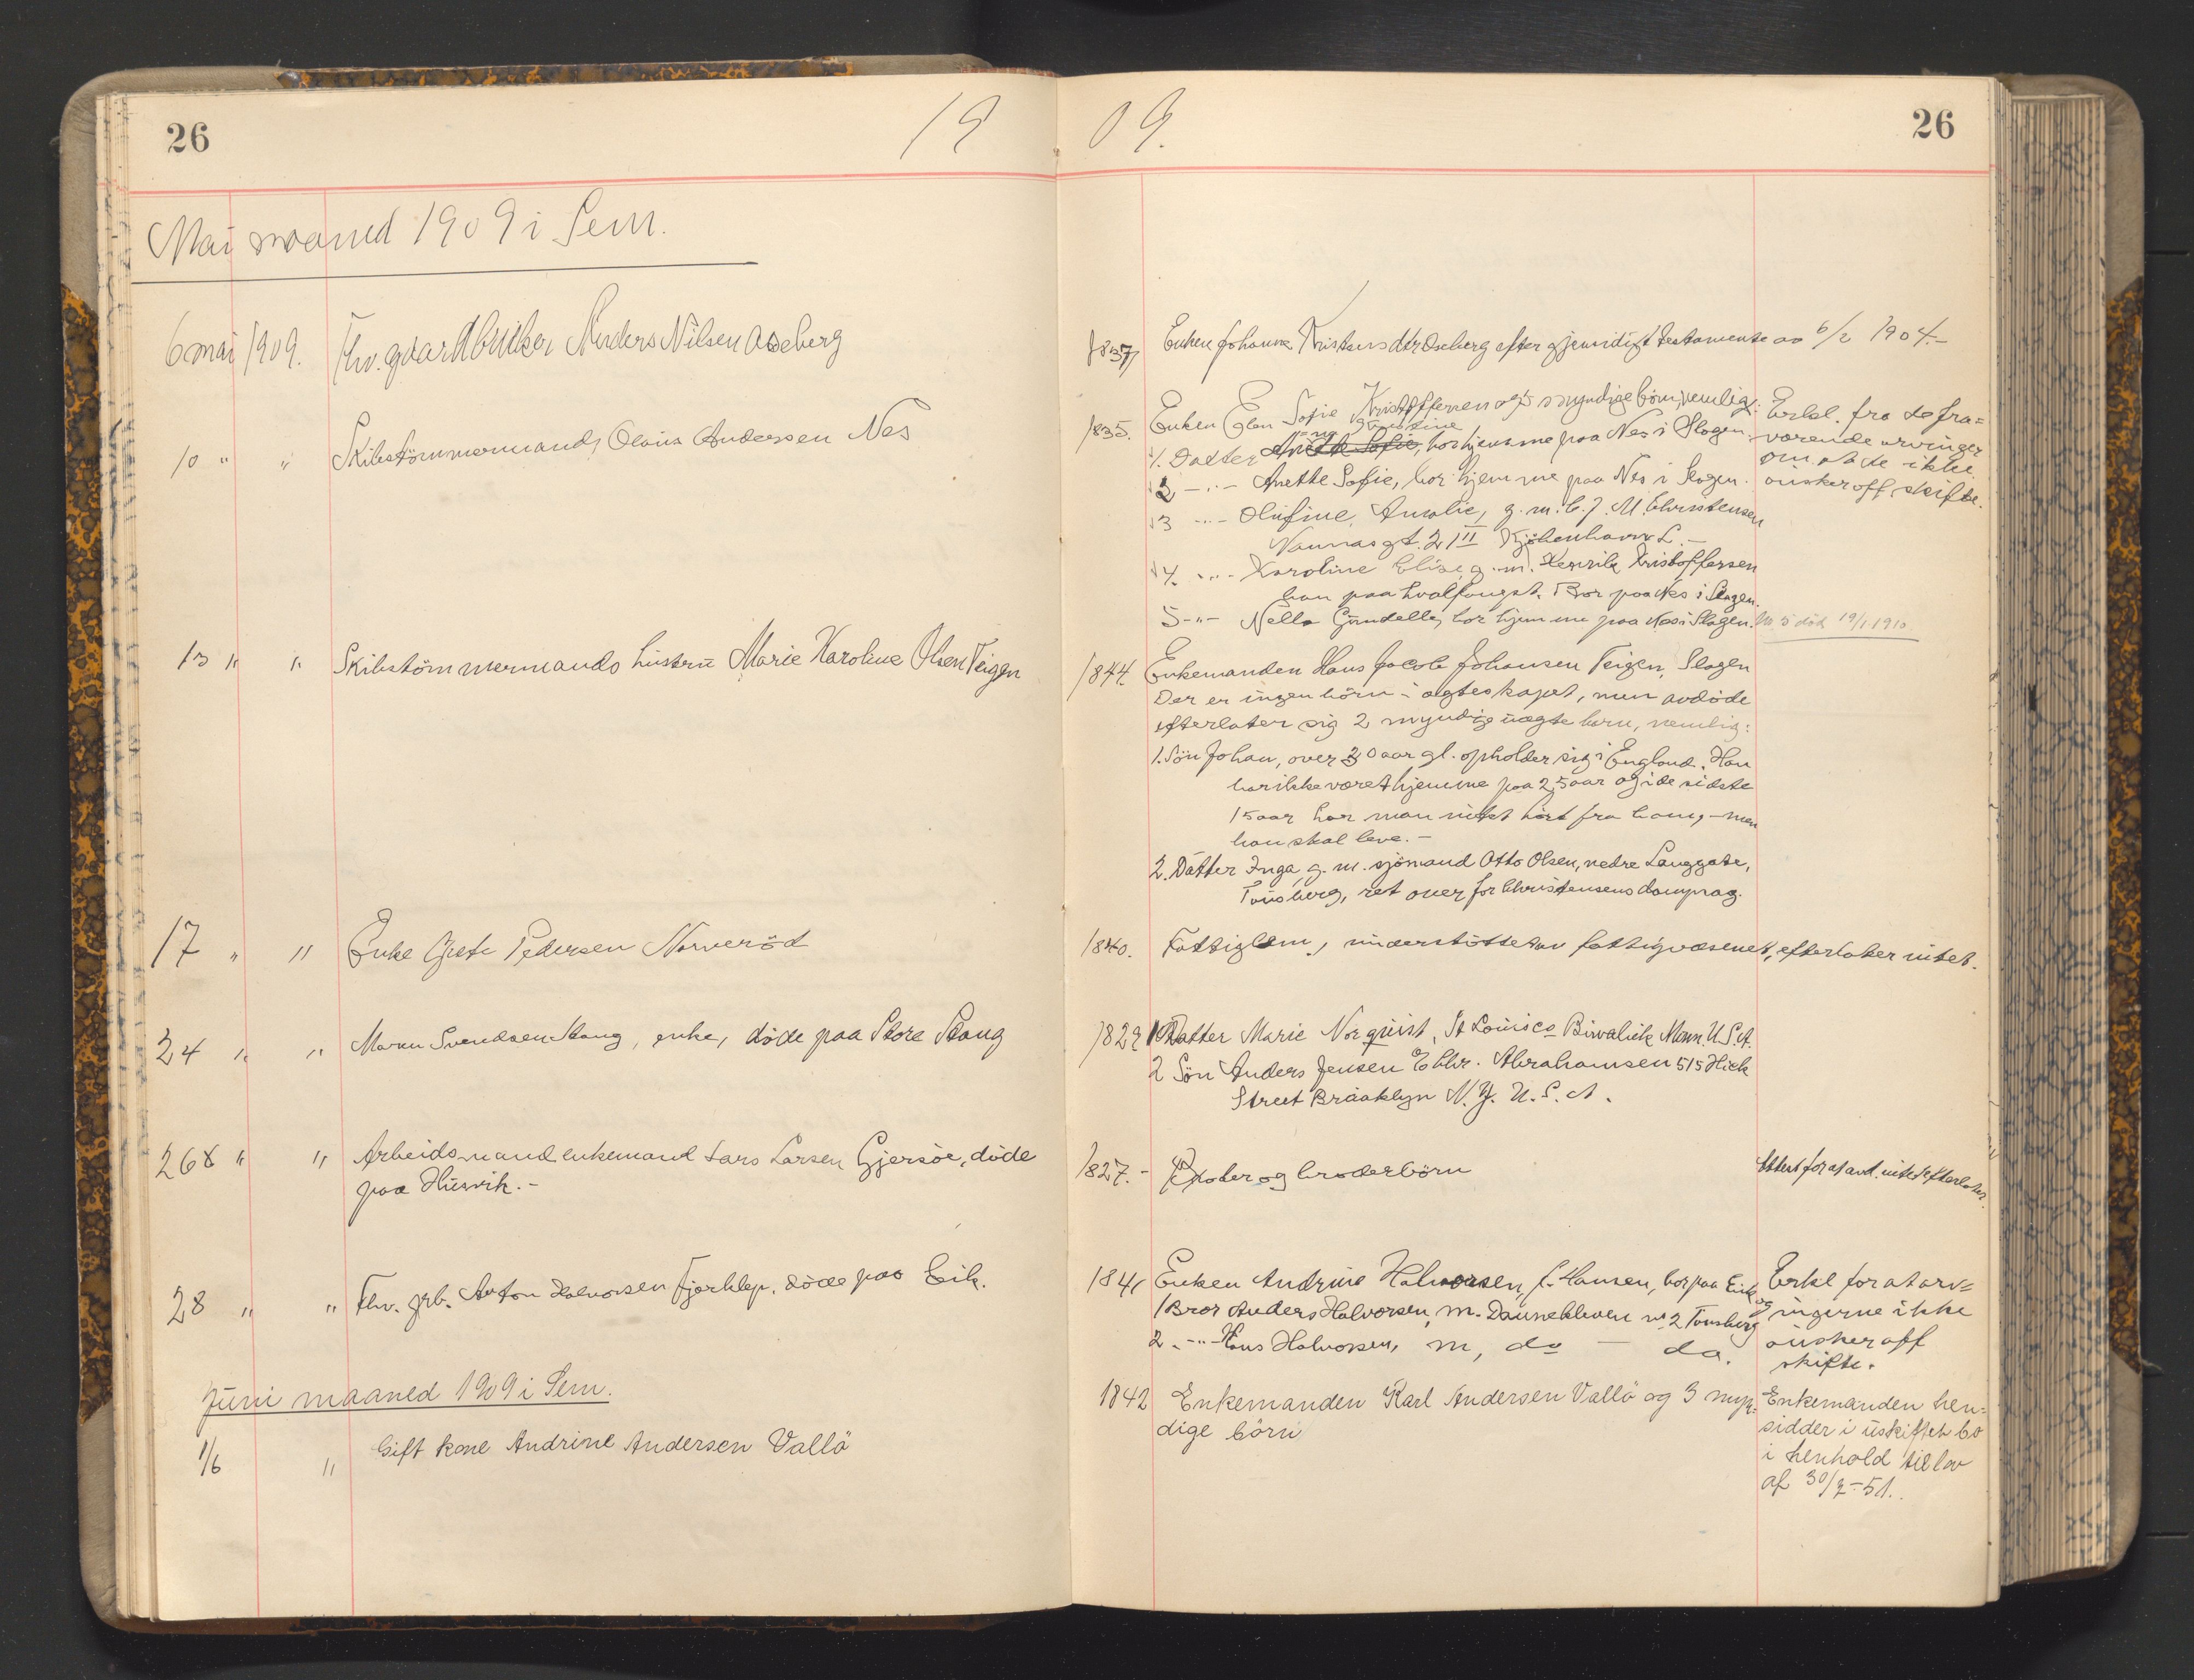 26
19
09.
26
Mai maaned 1909 i Sem.
6 mai 1909. Fhv. gaardbruker Anders Nilsen Oseberg
1837 Enken Johanne Kristensdtr Oseberg efter gjensidigt testamente av 6/2 1904.-
10 " " Skibstömmermand Olaus Andersen Nes
1835. Enken Elen Sofie Kristoffersen og 5 myndige börn, nemlig:
1. Datter Anette Sofie, bor hjemme paa Nes i Slagen.
2 -"- Anette Sofie, bor hjemme paa Nes i Slagen.
3 -"- Olufine Amalie, g. m. C. J. M. Christensen
Nannasgt. 2 III Kjöbenhavn L.-
4. -"- Karoline Elise g. m. Henrik Kristoffersen
han paa hvalfangst. Bor paa Nes i Slagen.
5 -"- Nella Gundelle, bor hjemme paa Nes i Slagen.
Erkl. fra de fra=
værende arvinger
om at de ikke
önsker off. skifte.
No 5 död 19/1 1910
13 " " Skibstömmermands hustru Marie Karoline Olsen Teigen
1844. Enkemanden Hans Jacob Johansen Teigen, Slagen
Der er ingen börn i ægteskapet, men avdöde
efterlater sig 2 myndige uægte barn, nemlig:
1. Sön Johan, over 30 aar gl. opholder sig i England. Han
har ikke været hjemme paa 25 aar og i de sidste
15 aar har man intet hört fra ham, - men
han skal leve.-
2. Datter Inga, g. m. sjömand Otto Olsen, nedre Langgate,
Tönsberg, ret over for Christensens dampsag.
17 " " Enke Grete Pedersen Narveröd
1840. Fattiglem, understöttet av fattigvæsenet, efterlater intet.
24 " " Maren Svendsen Stang, enke, döde paa Store Stang
1829 1 Datter Marie Norquist, St Louis co Biwalick Minn. U.S.A.
2 Sön Anders Jensen E Chr. Abrahamsen 515 Hick
Street Braaklyn N.Y. U.S.A.
26 " " Arbeidsmand enkemand Lars Larsen Gjersöe, döde
paa Husvik.-
1827.- Broder og broderbörn
Attest for at avd. intet efterlater.
28 " " Fhv. grb. Anton Halvorsen Fjærklep. döde paa Eik.
1841 Enken Andrine Halvorsen, f. Hansen, bor paa Eik og
1 Bror Anders Halvorsen, m. Dannekleven no 2 Tönsberg
2. -"- Hans Halvorsen, m, do - do.
Erkl for at arv=
ingerne ikke
önsker off
skifte.
Juni maaned 1909 i Sem.
1/6 " Gift kone Andrine Andersen Vallö
1842 Enkemanden Karl Andersen Vallö og 3 myn=
dige börn
Enkemanden hen=
sidder i uskiftet bo
i henhold til lov
af 30/7-51.